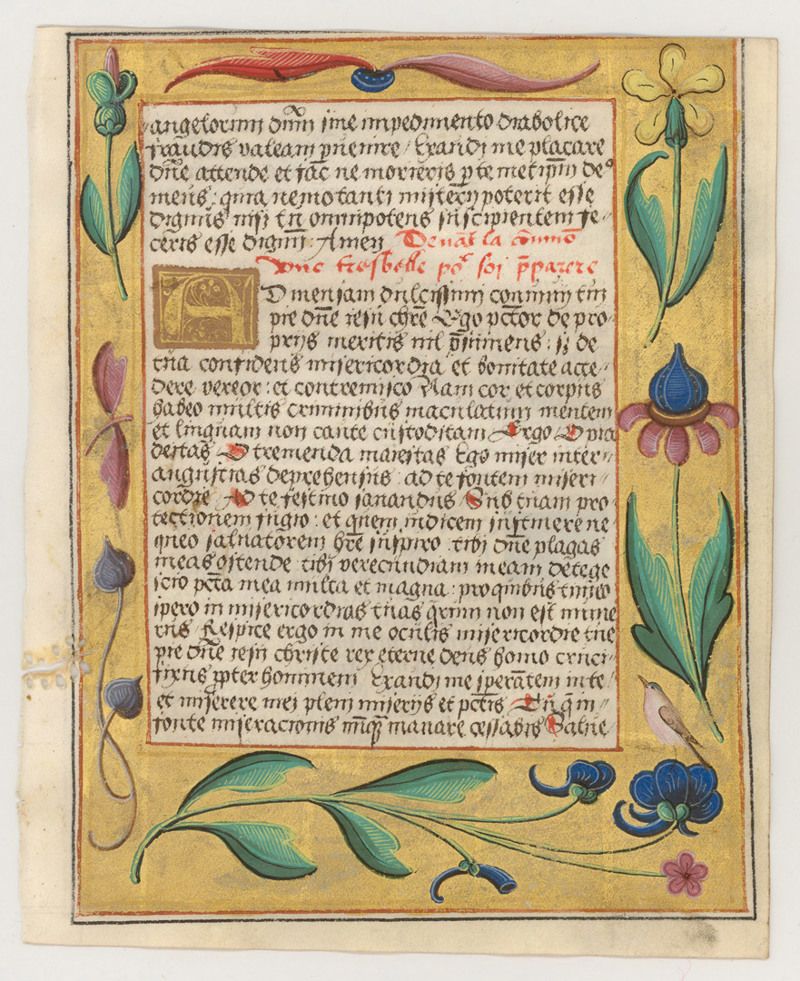 angelorum dm̄ sine impedimento diabolice
fraudis valeam puenire / Exaudi me placare
dn̄e attende et fac ne morieris p te metip̄m deꝰ
meus, quia nemo tanti misterij poterit esse
dignus nisi tu omnipotens suscipientem fe⸗
ceris esse dignū: Amen Deuāt la cōmuō
vne tresbelle po² soi p̄parere
AD mensam dulcissimi conuiuij tui
pie dn̄e iesu chr̄e Ego pctōr de pro⸗
prijs meritis nil p̄sumens: s; de
tua confidens misericordia et bonitate acce⸗
dere vereor: et contremisco Nam cor et corpus
habeo multis criminibus maculatum mentem
et linguam non caute custoditam Ergo O pia
deitas O tremenda maiestas Ego miser inter⸗
angustias deprehensus: ad te fontem miseri⸗
cordie Ad te festino sanandus Sub tuam pro⸗
tectionem fugio: et quem iudicem sustinere ne⸗
queo saluatorem hr̄e suspiro. tibi dn̄e plagas
meas ostende tibi verecundiam meam detege
scio pctā mea multa et magna: pro quibus timeo
spero in misericordias tuas qrum non est nume⸗
rus Respice ergo in me oculis misericordie tue
pie dn̄e iesu christe rex eterne deus homo cruci⸗
fixus ppter hominem Exaudi me sperātem in te⸗
et miserere mei pleni miserijs et pctīs Tu q̄ in⸗
fonte miseracionis nūq̄ manare cessabis Salue⸗